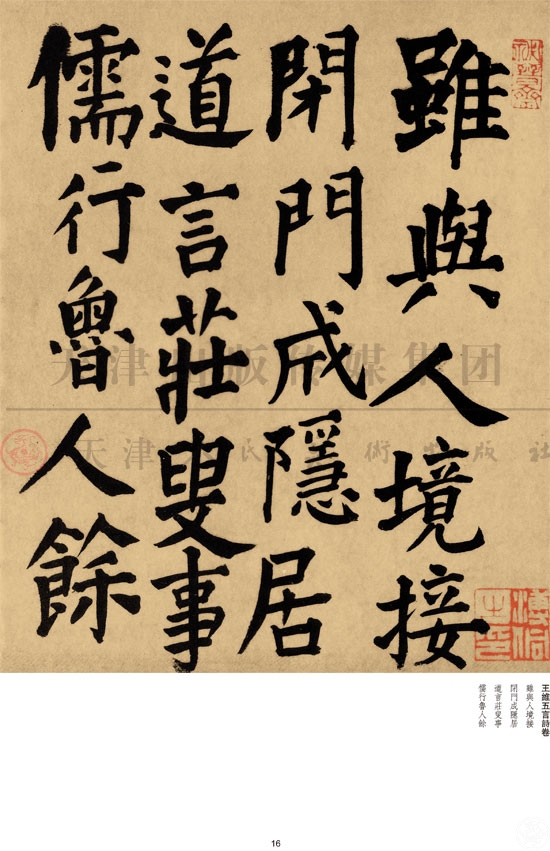 雖與人境接
閉門成隱居
道言莊叟事
儒行魯人餘
天津出版传媒集团
天津人民美术出版社
王維五言詩卷
雖與人境接
閉門成隱居
道言莊叟事
儒行魯人餘
16